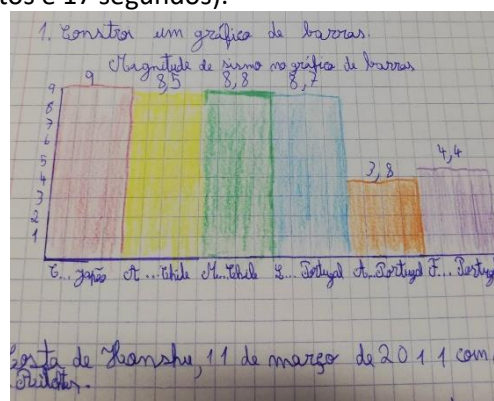 tos e 17 segundos).
1. Constroi um gráfico de barras.
Magnitude de sismo no gráfico de barras
9 8,5 8,8 8,7
9
8
7
6
5
4
3
2
1
3,8 4,4
C... Japão A...Chile M...Chile L... Portugal A...Portugal F... Portug
Costa de Honshu, 11 de março de 2011 com